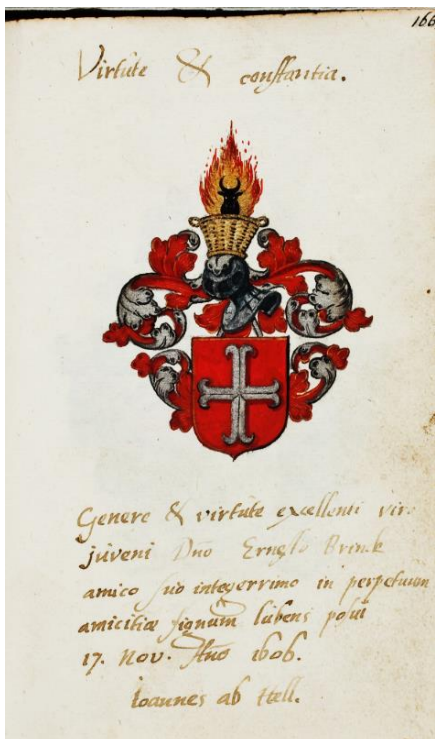 166
Virtute & constantia.
Genere & virtute excellenti viro
juveni Dno Ernesto Brinck
amico suo integerrimo in perpetuum
amicitiæ signum lubens posui
17. Nov. Año 1606.
Ioannes ab Hell.